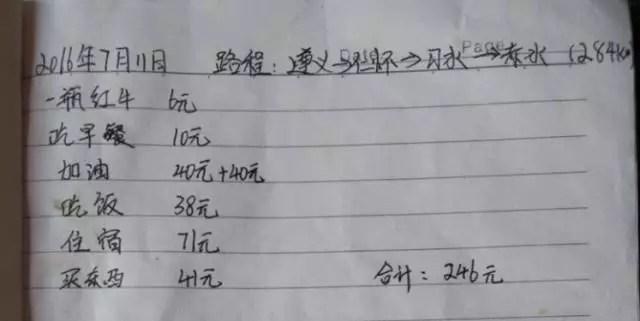 2016年7月11日 路程：遵义→仁怀→习水→赤水（284km
一瓶红牛 6元
吃早餐 10元
加油 40元+40元
吃饭 38元
住宿 71元
买东西 41元 合计：246元